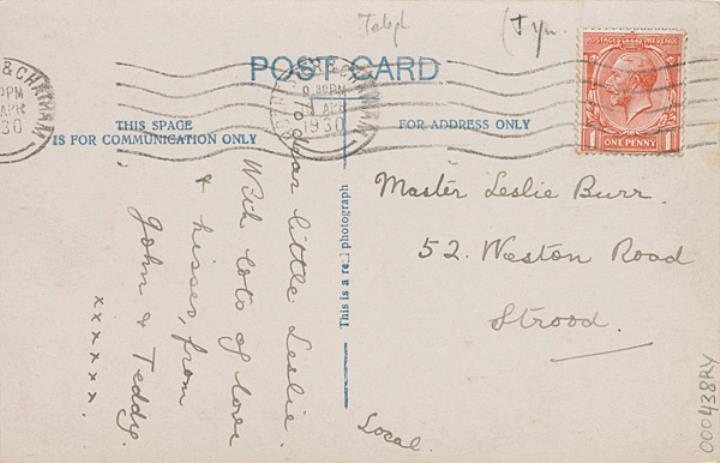 Teleph
POST CARD
POSTAGE REVENUE
ONE PENNY
& CHATHAM
PM
APR
30
PM
APR
1930
THIS SPACE
IS FOR COMMUNICATION ONLY
FOR ADDRESS ONLY
To dear little Leslie.
With lots of love
& kisses, from
John & Teddy.
xxxxxx.
This is a real photograph
Master Leslie Burr.
52. Weston Road
Strood.
Local.
000438RY